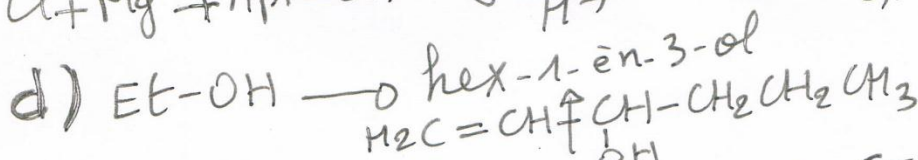 d) Et-OH → hex-1-èn-3-ol
H2C=CH-CH-CH2CH2CH3
OH